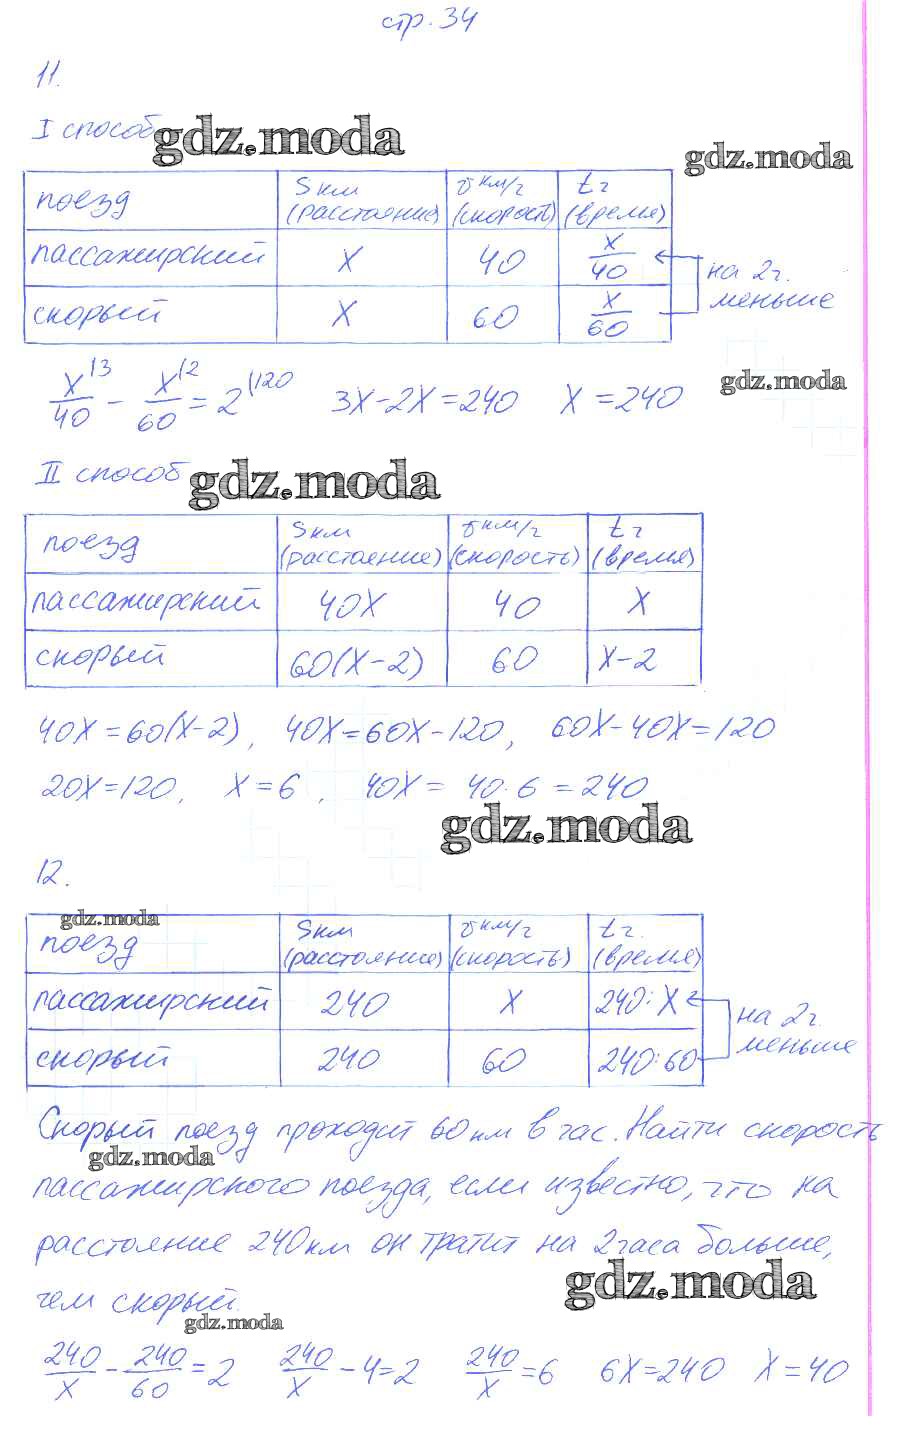 стр. 34
11.
I способ
gdz.moda
gdz.moda
поезд Sкм (расстояние) υ км/ч (скорость) tч (время)
пассажирский x 40 x/40
скорый x 60 x/60
на 2ч. меньше
gdz.moda
x\3/40 - x\2/60 = 2\120 3x-2x=240 x=240
II способ
gdz.moda
поезд Sкм (расстояние) υ км/ч (скорость) tч (время)
пассажирский 40x 40 x
скорый 60(x-2) 60 x-2
40x=60(x-2), 40x=60x-120, 60x-40x=120
20x=120, x=6, 40x= 40·6=240
gdz.moda
12.
gdz.moda
поезд Sкм (расстояние) υ км/ч (скорость) tч. (время)
пассажирский 240 x 240:x
скорый 240 60 240:60
на 2ч. меньше
Скорый поезд проходит 60 км в час. Найти скорость
gdz.moda
пассажирского поезда, если известно, что на
расстояние 240 км он тратит на 2 часа больше,
gdz.moda
чем скорый.
gdz.moda
240/x - 240/60 = 2 240/x - 4=2 240/x = 6 6x=240 x=40